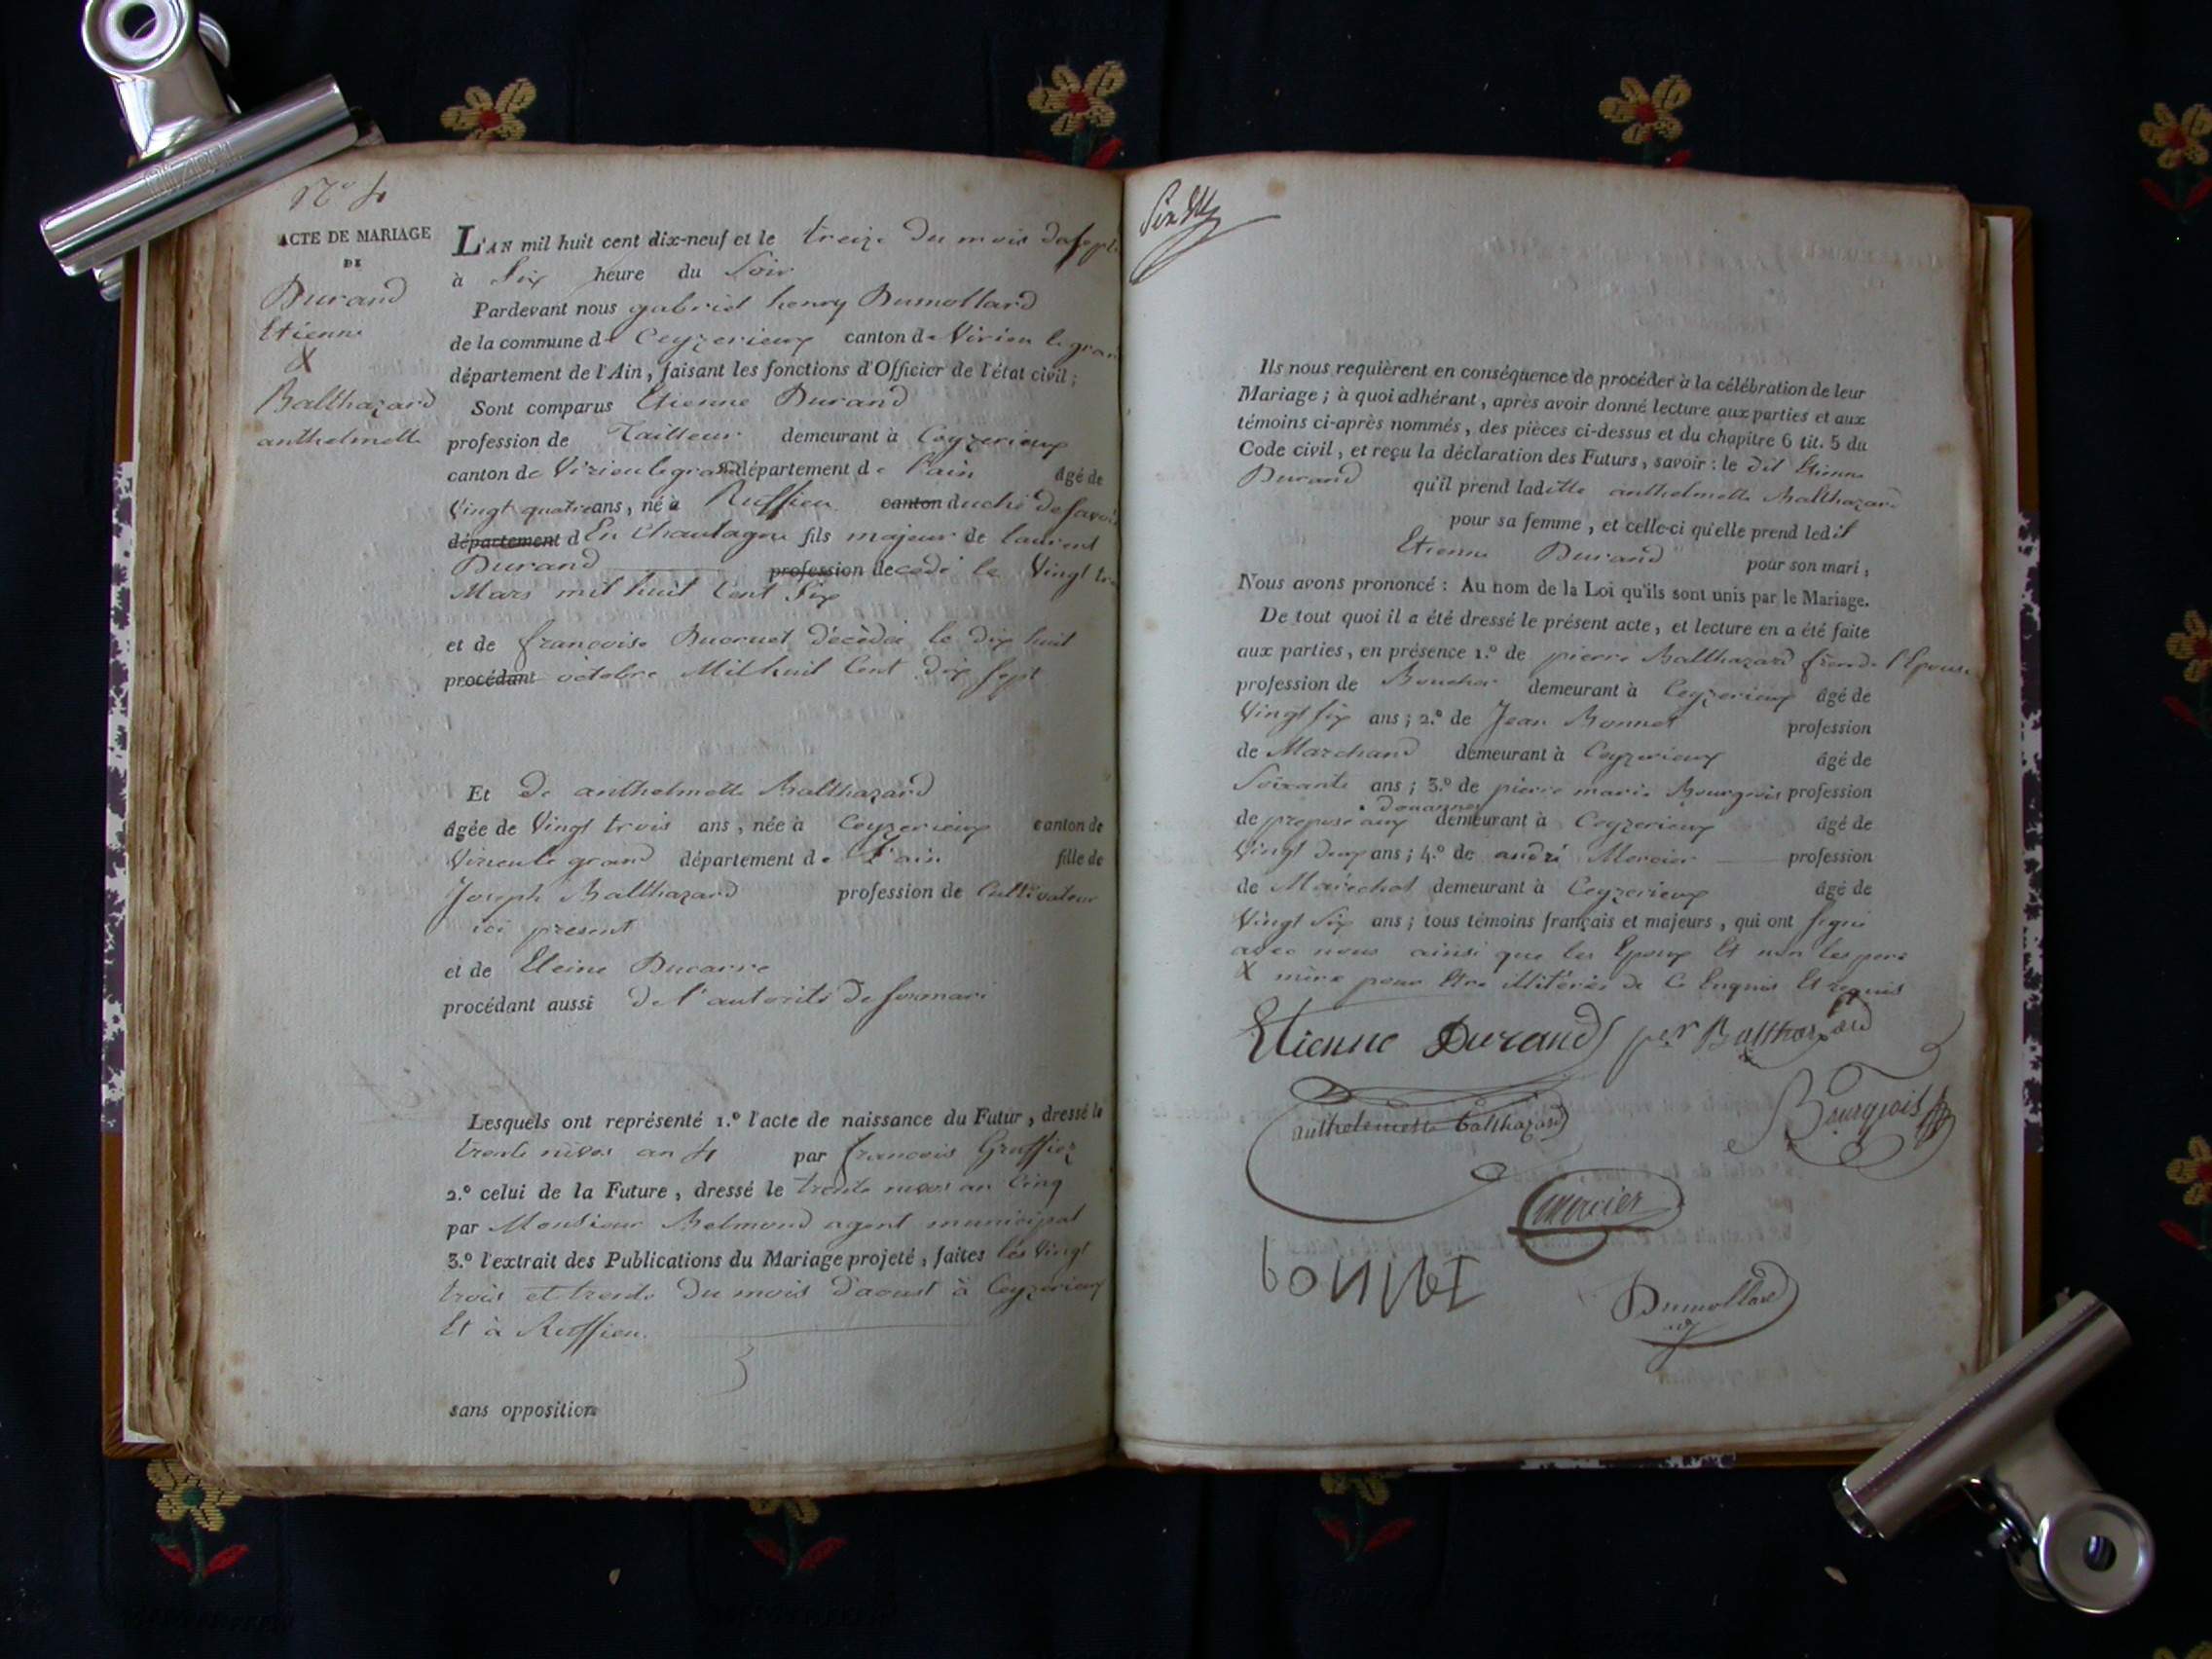 N.o 4
ACTE DE MARIAGE
DE
Durand
Etienne
&
Balthazard
anthelmette
L'AN mil huit cent dix-neuf et le treize du mois de sept
à Six heure du Soir
Pardevant nous gabriel henry Dumollard
de la commune de Ceyzerieux canton de Virieu le gran
département de l'Ain, faisant les fonctions d'Officier de l'état civil;
Sont comparus Etienne Durand
profession de Tailleur demeurant à Ceyzerieux
canton de Virieu le grand département de l'ain âgé de
Vingt quatre ans, né à Ruffieu canton duché de Savoi
département d En Chautagne fils majeur de laurent
Durand profession decedé le Vingt tr
Mars mil huit Cent Six
et de francoise Ducruet décédée le dix huit
procédant octobre Mil huit Cent dix Sept
Et de anthelmette Balthazard
âgée de Vingt trois ans, née à Ceyzerieux canton de
Virieu le grand département de l'ain fille de
Joseph Balthazard profession de Cultivateur
ici présent
et de Eleine Ducarre
procédant aussi de l'autorité de son mari
Lesquels ont représenté 1.º l'acte de naissance du Futur, dressé le
trente nivos an 4 par francois Gruffiez
2.º celui de la Future, dressé le trente nivos an Cinq
par Monsieur Belmond agent municipal
3.º l'extrait des Publications du Mariage projeté, faites les Vingt
trois et trente du mois d'aoust à Ceyzerieux
Et à Ruffieu.
sans opposition
Six
Ils nous requièrent en conséquence de procéder à la célébration de leur
Mariage; à quoi adhérant, après avoir donné lecture aux parties et aux
témoins ci-après nommés, des pièces ci-dessus et du chapitre 6 tit. 5 du
Code civil, et reçu la déclaration des Futurs, savoir: le dit Etienne
Durand qu'il prend laditte anthelmette Balthazard
pour sa femme, et celle-ci qu'elle prend ledit
Etienne Durand pour son mari,
Nous avons prononcé: Au nom de la Loi qu'ils sont unis par le Mariage.
De tout quoi il a été dressé le présent acte, et lecture en a été faite
aux parties, en présence 1.º de pierre Balthazard frere de l'Epouse
profession de Boucher demeurant à Ceyzerieux âgé de
Vingt Six ans; 2.º de Jean Bonnet profession
de Marchand demeurant à Ceyzerieux âgé de
Soixante ans; 3.º de pierre marie Bourgeois profession
douannes
de preposé aux demeurant à Ceyzerieux âgé de
Vingt deux ans; 4.º de andré Mercier profession
de Maréchal demeurant à Ceyzerieux âgé de
Vingt Six ans; tous témoins français et majeurs, qui ont signé
avec nous ainsi que les Epoux Et non les pere
& mère pour Etre illitérés de Ce Enquis Et requis
Etienne Durand per Balthazard
anthelemette balthazard
Bourgeois
mercier
bonnet
Dumollard